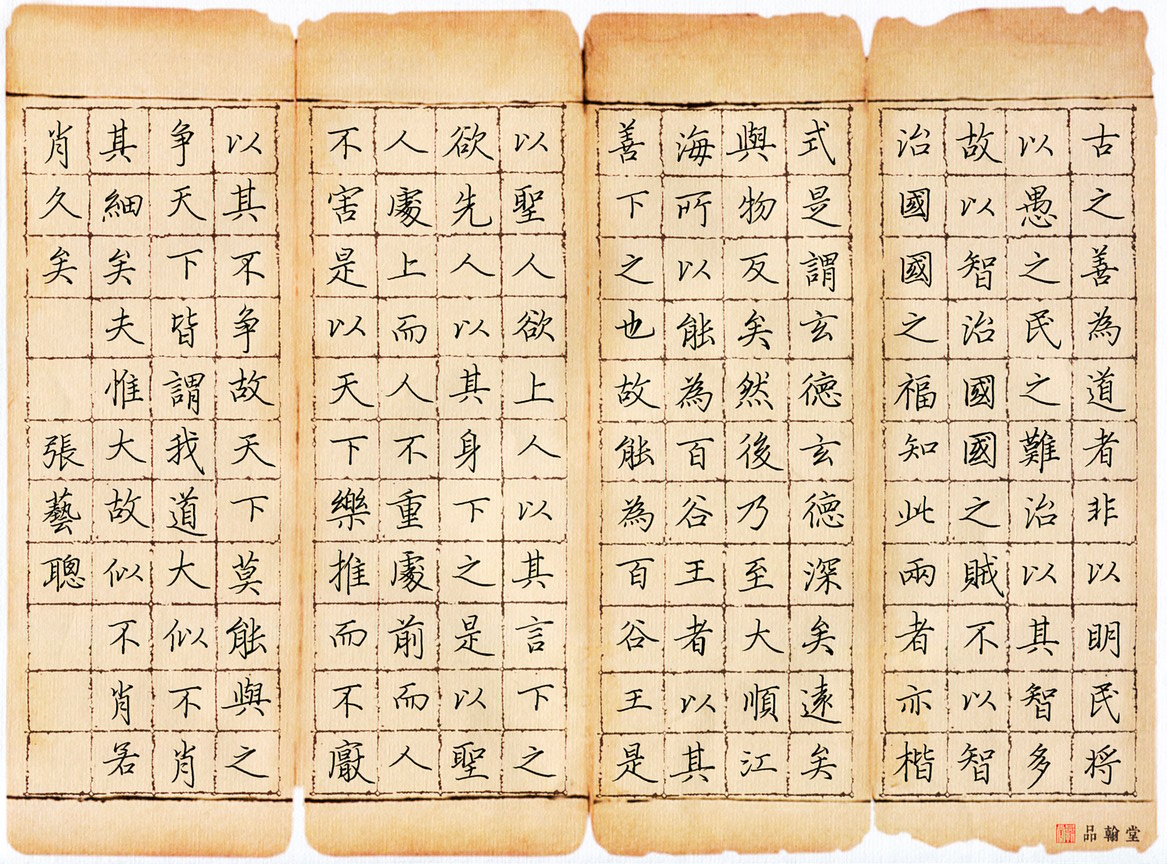 古之善為道者非以明民将
以愚之民之難治以其智多
故以智治國國之賊不以智
治國國之福知此兩者亦楷
式是謂玄德玄德深矣遠矣
與物反矣然後乃至大順江
海所以能為百谷王者以其
善下之也故能為百谷王是
以聖人欲上人以其言下之
欲先人以其身下之是以聖
人處上而人不重處前而人
不害是以天下樂推而不厭
以其不争故天下莫能與之
争天下皆謂我道大似不肖
其細矣夫惟大故似不肖若
肖久矣
張藝聰
品翰堂